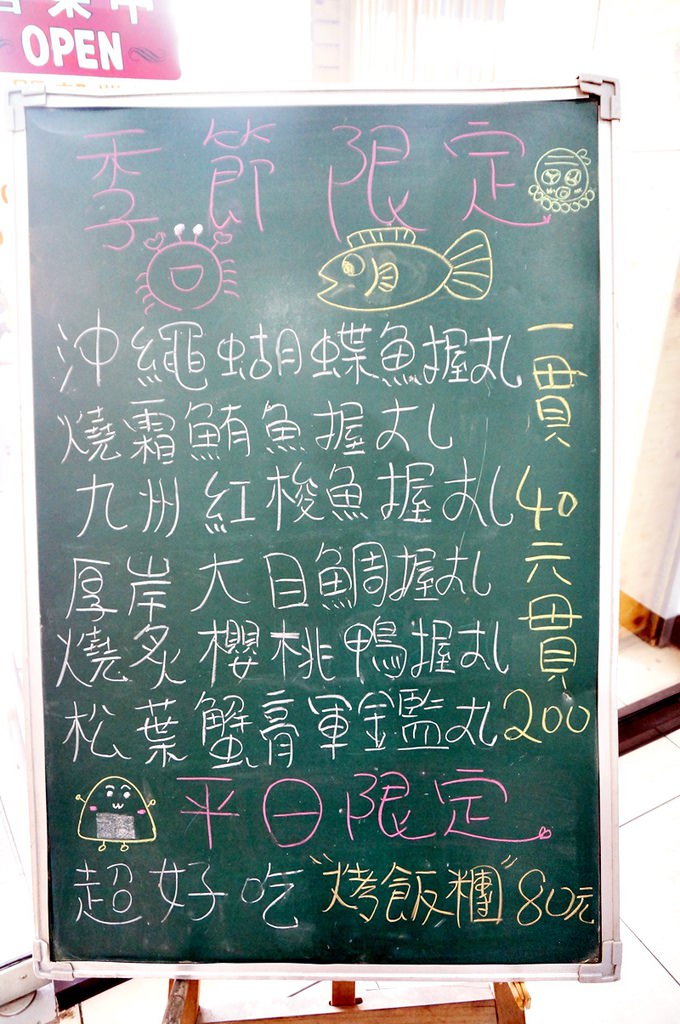 OPEN
季節限定
沖繩蝴蝶魚握丸
燒霜鮪魚握丸
九州紅梭魚握丸
厚岸大目鯛握丸
燒炙櫻桃鴨握丸
松葉蟹膏軍鑑丸
一貫 40元
貫 200
平日限定
超好吃"烤飯糰"80元